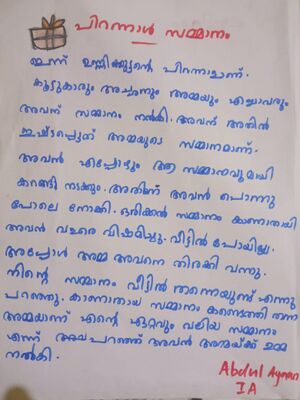 പിറന്നാൾ സമ്മാനം
ഇന്ന് ഉണ്ണിക്കുട്ടന്റെ പിറന്നാളാണ്.
കൂട്ടുകാരും അച്ഛനും അമ്മയും എല്ലാവരും
അവന് സമ്മാനം നൽകി. അവന് അതിൽ
ഇഷ്ടപ്പെട്ടത് അമ്മയുടെ സമ്മാനമാണ്.
അവൻ എപ്പോഴും ആ സമ്മാനവുമായി
കറങ്ങി നടക്കും. അതിനെ അവൻ പൊന്നു
പോലെ നോക്കി. ഒരിക്കൽ സമ്മാനം കാണാതായി
അവൻ വളരെ വിഷമിച്ചു. വീട്ടിൽ പോയില്ല.
അപ്പോൾ അമ്മ അവനെ തിരക്കി വന്നു.
നിന്റെ സമ്മാനം വീട്ടിൽ തന്നെയുണ്ട് എന്നു
പറഞ്ഞു. കാണാതായ സമ്മാനം കണ്ടെത്തി തന്ന
അമ്മയാണ് എന്റെ ഏറ്റവും വലിയ സമ്മാനം
എന്ന് പറഞ്ഞ് അവൻ അമ്മയ്ക്ക് ഉമ്മ
നൽകി.
Abdul Ayman
I A